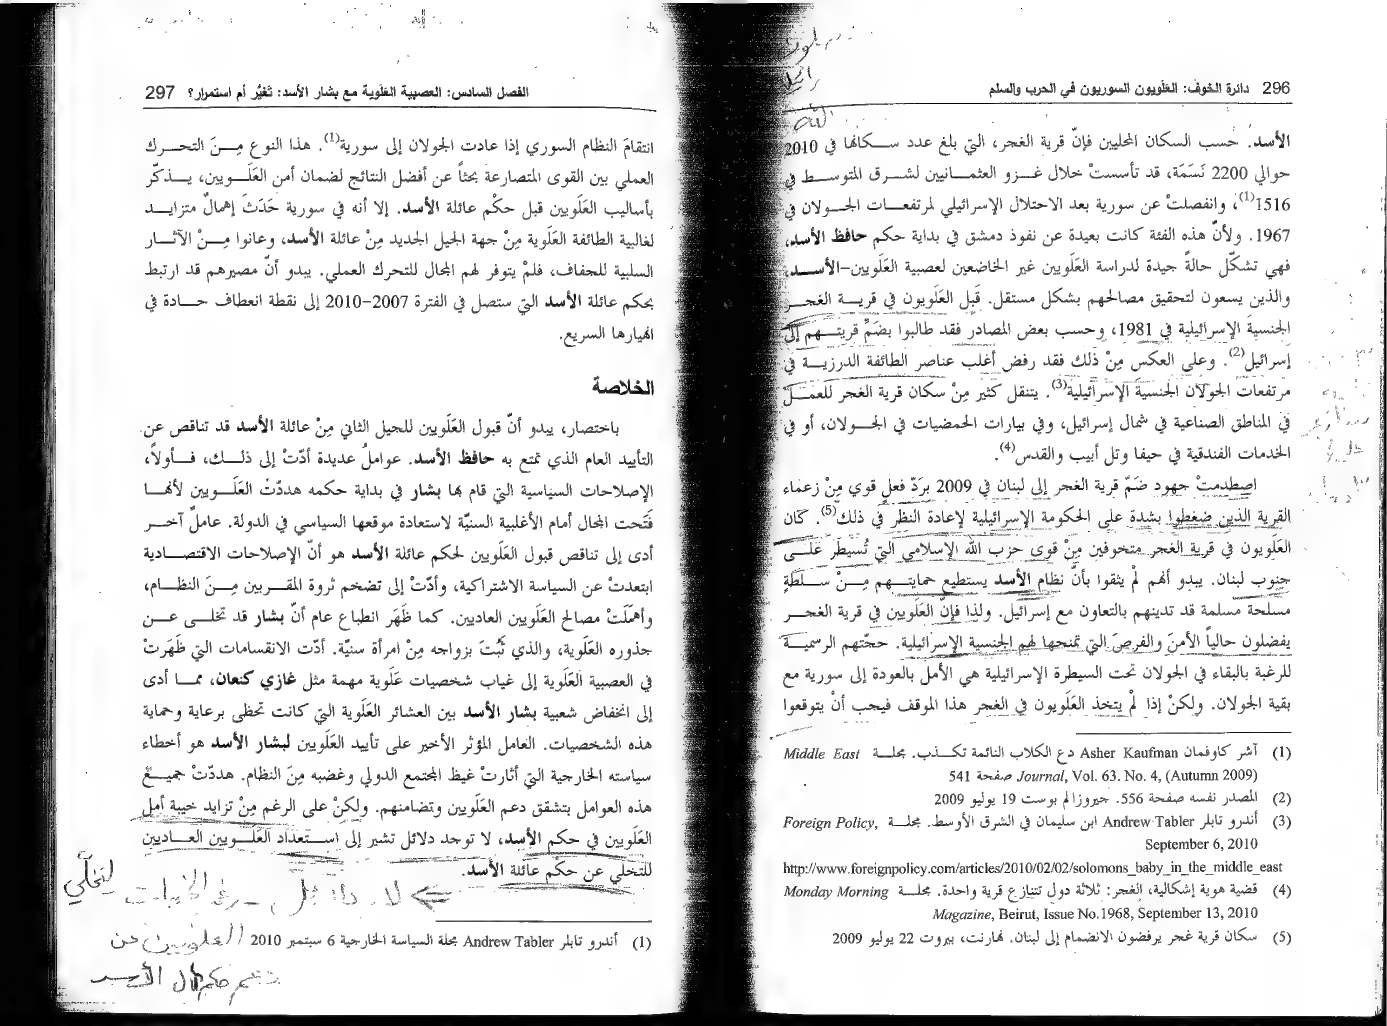 296 دائرة الخوف: العَلَويون السوريون في الحرب والسلم
الأسد. حسب السكان المحليين فإنّ قرية الغجر، التي بلغ عدد ســكانها في 2010
حوالي 2200 نَسَمَة، قد تأسستْ خلال غــزو العثمــانيين لشــرق المتوســط في
1516(1)، وانفصلتْ عن سورية بعد الاحتلال الإسرائيلي لمرتفعــات الجــولان في
1967. ولأنّ هذه الفئة كانت بعيدة عن نفوذ دمشق في بداية حكم حافظ الأسد،
فهي تشكّل حالةً جيدة لدراسة العَلَويين غير الخاضعين لعصبية العَلَويين-الأســد،
والذين يسعون لتحقيق مصالحهم بشكل مستقل. قَبِل العَلَويون في قريــة الغجــر
الجنسيةَ الإسرائيلية في 1981، وحسب بعض المصادر فقد طالبوا بضَمِّ قريتــهم إلى
إسرائيل(2). وعلى العكس مِنْ ذلك فقد رفض أغلب عناصر الطائفة الدرزيــة في
مرتفعات الجولان الجنسيةَ الإسرائيلية(3). يتنقل كثير مِنْ سكان قرية الغجر للعمــل
في المناطق الصناعية في شمال إسرائيل، وفي بيارات الحمضيات في الجــولان، أو في
الخدمات الفندقية في حيفا وتل أبيب والقدس(4).
اصطدمتْ جهود ضَمّ قرية الغجر إلى لبنان في 2009 بردّ فعلٍ قوي مِنْ زعماء
القرية الذين ضغطوا بشدة على الحكومة الإسرائيلية لإعادة النظر في ذلك(5). كان
العَلَويون في قرية الغجر متخوفين مِنْ قوى حزب الله الإسلامي التي تُسيطر علــى
جنوب لبنان. يبدو أنهم لمْ يثقوا بأنّ نظام الأسد يستطيع حمايتــهم مِــنْ ســلطةٍ
مسلحة مسلمة قد تدينهم بالتعاون مع إسرائيل. ولذا فإنّ العَلَويين في قرية الغجــر
يفضلون حالياً الأمنَ والفرصَ التي تمنحها لهم الجنسية الإسرائيلية. حجّتهم الرسميــة
للرغبة بالبقاء في الجولان تحت السيطرة الإسرائيلية هي الأمل بالعودة إلى سورية مع
بقية الجولان. ولكنْ إذا لمْ يتخذ العَلَويون في الغجر هذا الموقف فيجب أنْ يتوقعوا
(1) آشر كاوفمان Asher Kaufman دع الكلاب النائمة تكــذب. مجلــة Middle East
Journal, Vol. 63. No. 4, (Autumn 2009) صفحة 541
(2) المصدر نفسه صفحة 556. جيروزالم بوست 19 يوليو 2009
(3) أندرو تابلر Andrew Tabler ابن سليمان في الشرق الأوسط. مجلــة Foreign Policy,
September 6, 2010
http://www.foreignpolicy.com/articles/2010/02/02/solomons_baby_in_the_middle_east
(4) قضية هوية إشكالية، الغجر: ثلاثة دول تتنازع قرية واحدة. مجلــة Monday Morning
Magazine, Beirut, Issue No.1968, September 13, 2010
(5) سكان قرية غجر يرفضون الانضمام إلى لبنان. نهارنت، بيروت 22 يوليو 2009
الفصل السادس: العصبية العَلَوية مع بشار الأسد: تَغيُّر أم استمرار؟ 297
انتقامَ النظام السوري إذا عادت الجولان إلى سورية(1). هذا النوع مِــنَ التحــرك
العملي بين القوى المتصارعة بحثاً عن أفضل النتائج لضمان أمن العَلَــويين، يــذكّر
بأساليب العَلَويين قبل حكْم عائلة الأسد. إلا أنه في سورية حَدَثَ إهمالٌ متزايــد
لغالبية الطائفة العَلَوية مِنْ جهة الجيل الجديد مِنْ عائلة الأسد، وعانوا مِــنْ الآثــار
السلبية للجفاف، فلمْ يتوفر لهم المجال للتحرك العملي. يبدو أنّ مصيرهم قد ارتبط
بحكم عائلة الأسد التي ستصل في الفترة 2007-2010 إلى نقطة انعطاف حــادة في
انهيارها السريع.
الخلاصة
باختصار، يبدو أنّ قبول العَلَويين للجيل الثاني مِنْ عائلة الأسد قد تناقص عن
التأييد العام الذي تمتع به حافظ الأسد. عواملُ عديدة أدّتْ إلى ذلــك، فــأولاً،
الإصلاحات السياسية التي قام بها بشار في بداية حكمه هددّتْ العَلَــويين لأنهــا
فَتَحت المجال أمام الأغلبية السنيّة لاستعادة موقعها السياسي في الدولة. عاملٌ آخــر
أدى إلى تناقص قبول العَلَويين لحكم عائلة الأسد هو أنّ الإصلاحات الاقتصــادية
ابتعدتْ عن السياسة الاشتراكية، وأدّتْ إلى تضخم ثروة المقــربين مِــنَ النظــام،
وأهملَتْ مصالح العَلَويين العاديين. كما ظَهَر انطباع عام أنّ بشار قد تخلــى عــن
جذوره العَلَوية، والذي ثُبِّتَ بزواجه مِنْ امرأة سنيّة. أدّت الانقسامات التي ظَهَرتْ
في العصبية العَلَوية إلى غياب شخصيات عَلَوية مهمة مثل غازي كنعان، ممــا أدى
إلى انخفاض شعبية بشار الأسد بين العشائر العَلَوية التي كانت تحظى برعاية وحماية
هذه الشخصيات. العامل المؤثر الأخير على تأييد العَلَويين لبشار الأسد هو أخطاء
سياسته الخارجية التي أثارتْ غيظ المجتمع الدولي وغضبه مِنَ النظام. هددّتْ جميــعُ
هذه العوامل بتشقق دعم العَلَويين وتضامنهم. ولكنْ على الرغم مِنْ تزايد خيبة أمل
العَلَويين في حكم الأسد، لا توجد دلائل تشير إلى استــعداد العَلَــويين العــاديين
للتخلي عن حكْم عائلة الأسد.
(1) أندرو تابلر Andrew Tabler مجلة السياسة الخارجية 6 سبتمبر 2010
العلويين عن
دعم حكم آل الأسد